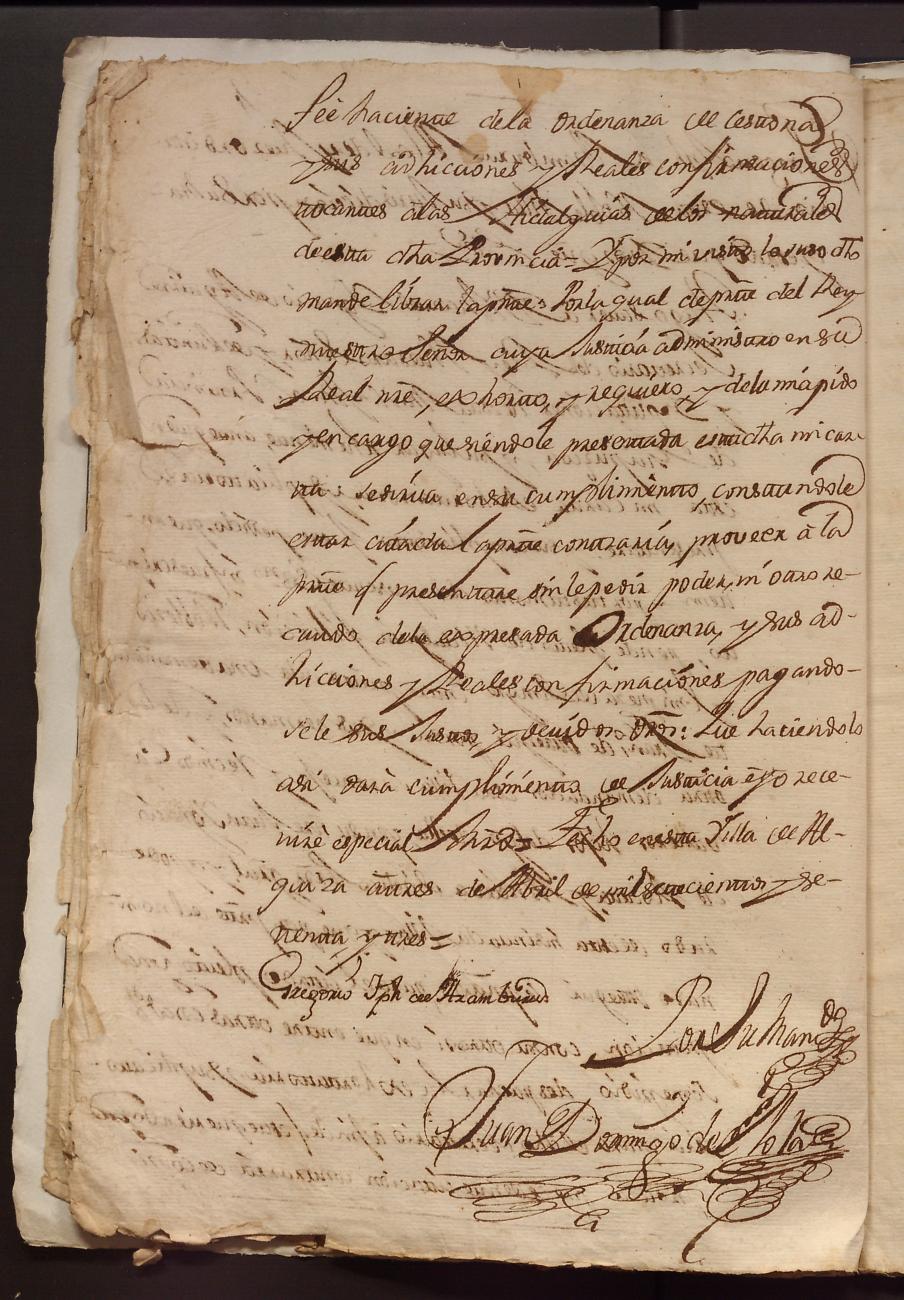 feè haciente dela ordenanza de Cestona
y sus adhicciones y Reales confirmaciones
tocantes alas Hidalguias delos naturales
de esta dha Provincia = Y por mi visto lo suso dho
mande librar la preste: Por la qual de prte del Rey
nuestro Señor cuya Justicia administro en su
Real nre, exhorto, y requiero, y dela mia pido
y encargo que siendole presentada esta dha mi car
ta: se sirva en su cumplimento, constandole
estar citada la prte contraria, proveer à la
prte q presentare sin le pedir poder, ni otro re-
caudo dela expresada Ordenanza, y sus ad-
hicciones y Reales confirmaciones pagando-
sele sus Justos, y devidos dros: Que haciendolo
asi darà cumplimento de Justicia è yo rece-
virè especial = Fecho en esta Villa de Al-
quiza à tres de Abril de mil setecientos y se-
tenta y tres =
Gregorio Jph de Aramburu
Por Su Mando
Juan Domingo de